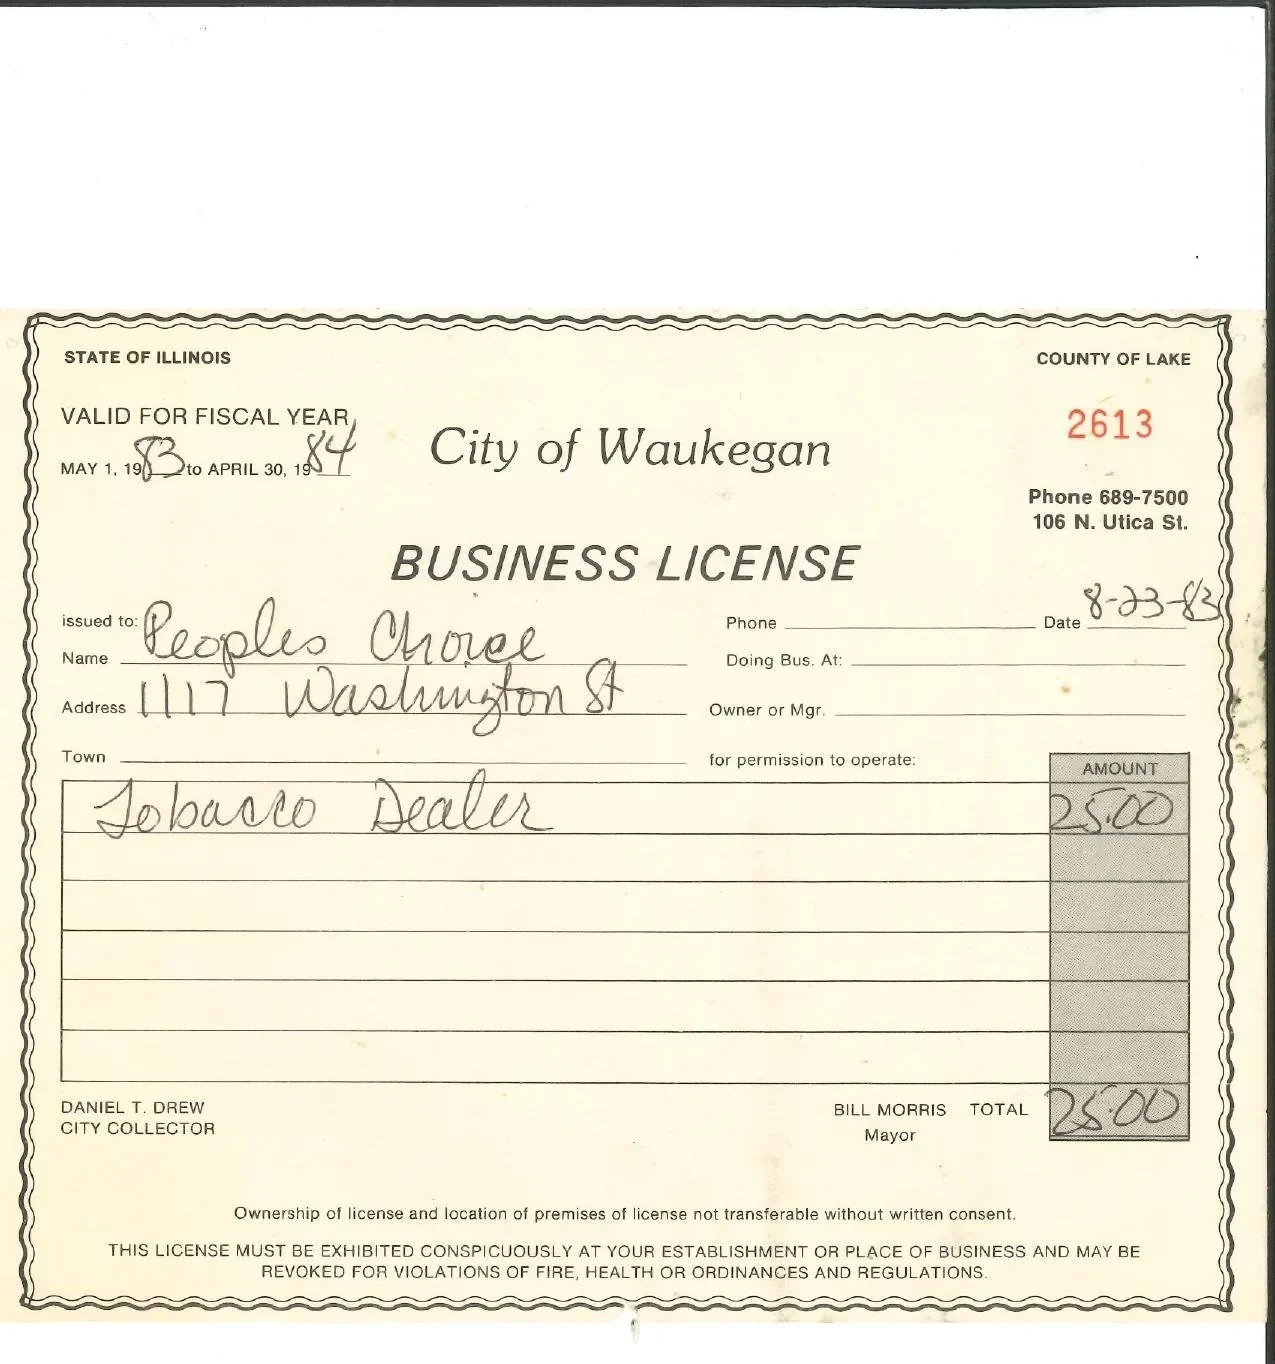 STATE OF ILLINOIS
COUNTY OF LAKE
VALID FOR FISCAL YEAR
MAY 1, 1983 to APRIL 30, 1984
City of Waukegan
2613
Phone 689-7500
106 N. Utica St.
BUSINESS LICENSE
issued to:
Name Peoples Choice
Phone
Date 8-23-83
Doing Bus. At:
Address 1117 Washington St
Owner or Mgr.
Town
for permission to operate:
AMOUNT
Tobacco Dealer 25.00
DANIEL T. DREW
CITY COLLECTOR
BILL MORRIS TOTAL 25.00
Mayor
Ownership of license and location of premises of license not transferable without written consent.
THIS LICENSE MUST BE EXHIBITED CONSPICUOUSLY AT YOUR ESTABLISHMENT OR PLACE OF BUSINESS AND MAY BE
REVOKED FOR VIOLATIONS OF FIRE, HEALTH OR ORDINANCES AND REGULATIONS.